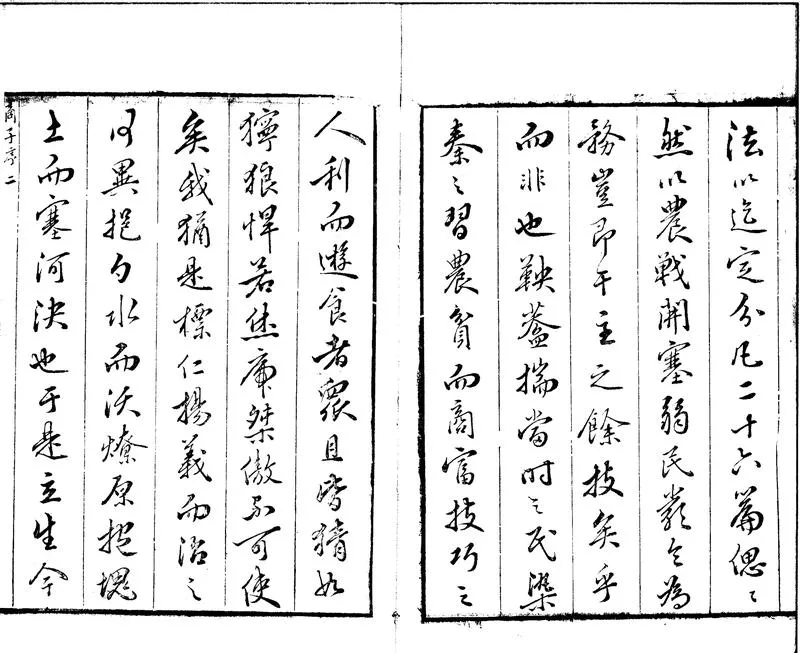 法以迄定分凡二十六篇偲〻
然以農戰開塞弱民令為
務豈即干主之餘技矣乎
而非也鞅蓋揣當時之民染
秦之習農貧而商富技巧之
人利而遊食者眾且皆猜如
獰狼悍若廉桀傲不可使
矣我猶是標仁揚義而治之
何異挹勺水而沃燎原抱塊
土而塞河決也于是立生今
商子序 二